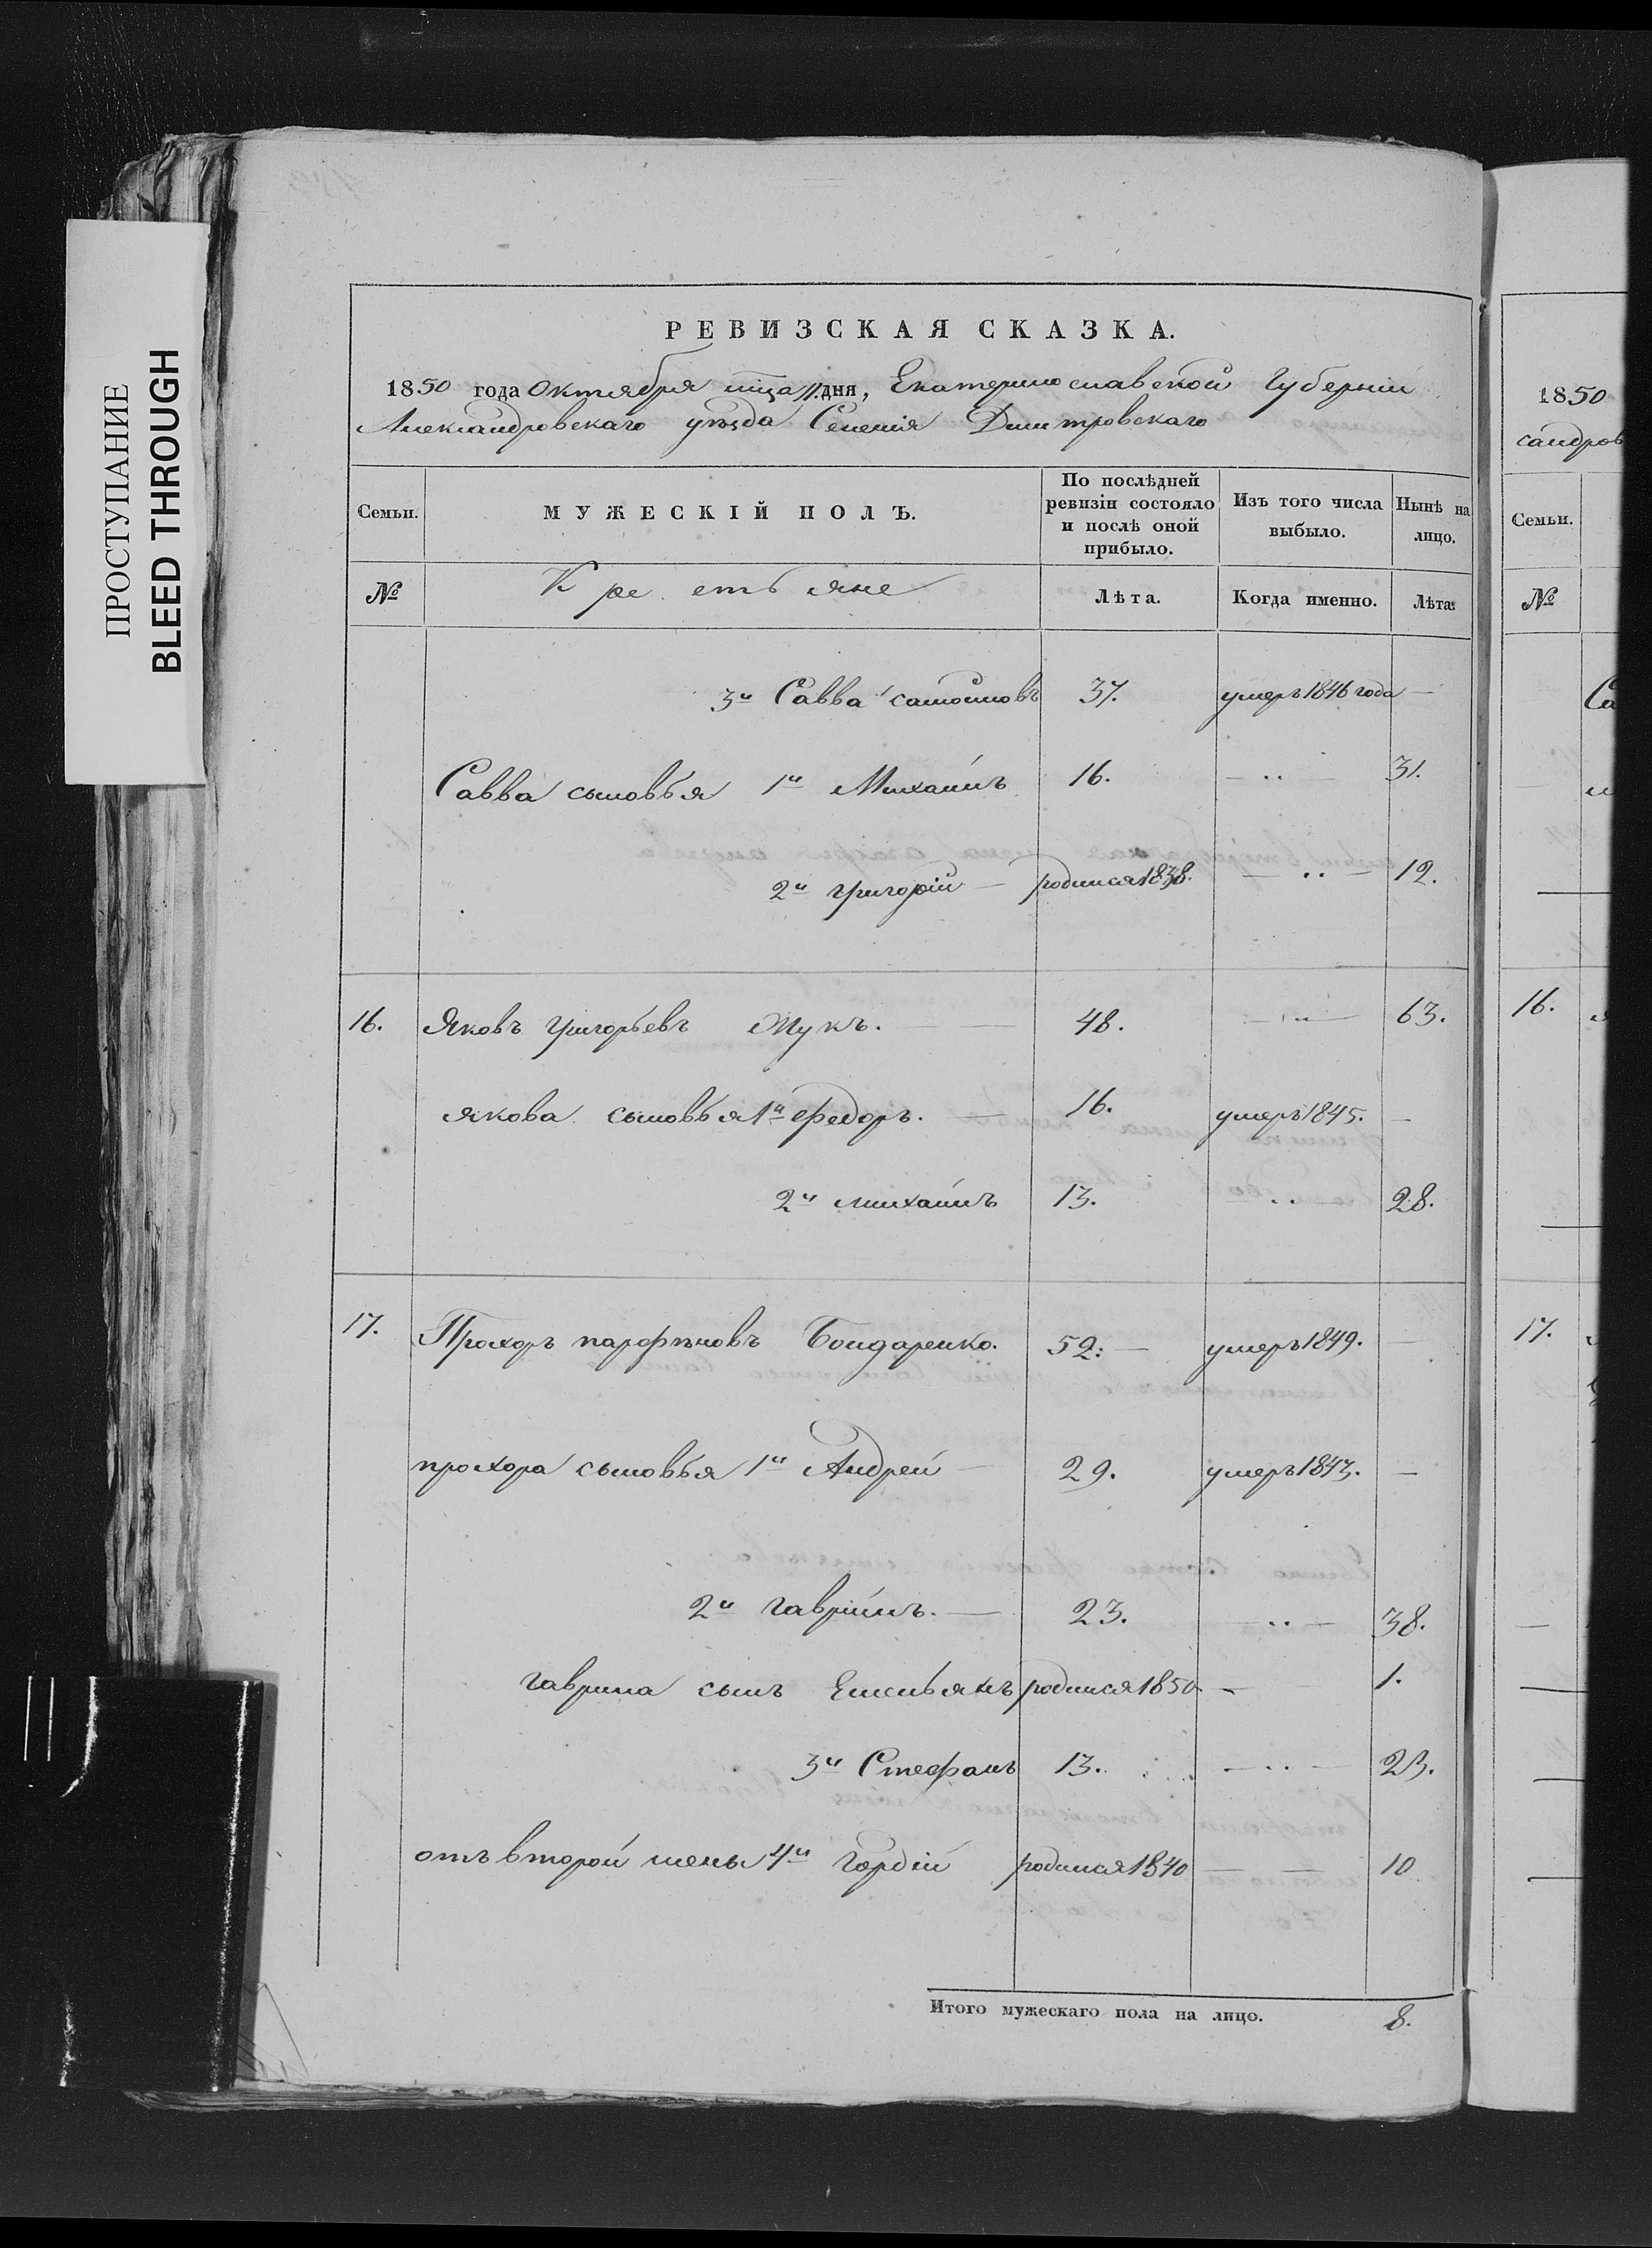 ПРОСТУПАНИЕ
BLEED THROUGH
РЕВИЗСКАЯ СКАЗКА.
1850 года Октября мца 11 дня, Екатеринославской Губерніи
Александровскаго уѣзда Селенія Дмитровскаго
1850
сандров
Семьи. МУЖЕСКІЙ ПОЛЪ. По послѣдней ревизіи состояло и послѣ оной прибыло. Изъ того числа выбыло. Нынѣ на лицо.
Семьи.
№ Крестьяне Лѣта. Когда именно. Лѣта.
№
3й Савва 37. умеръ 1846 года —
Савва сыновья 1й Михаилъ 16. — .. — 31.
2й Григорій — родился 1838. — .. — 12.
16. Яковъ Григорьевъ Жукъ. — 48. — .. — 63.
16.
Якова сыновья 1й Федоръ. — 16. умеръ 1845. —
2й михаилъ 13. — .. — 28.
17. Прохоръ парфеновъ Бондаренко. 52. — умеръ 1849. —
17.
прохора сыновья 1й Андрей — 29. умеръ 1843. —
2й гаврiилъ. — 23. — .. — 38.
гаврила сынъ Емельянъ родился 1850 — 1.
3й Стефанъ 13. — .. — 23.
отъ второй жены 4й Гордій родился 1840 — — 10
Итого мужескаго пола на лицо. 8.